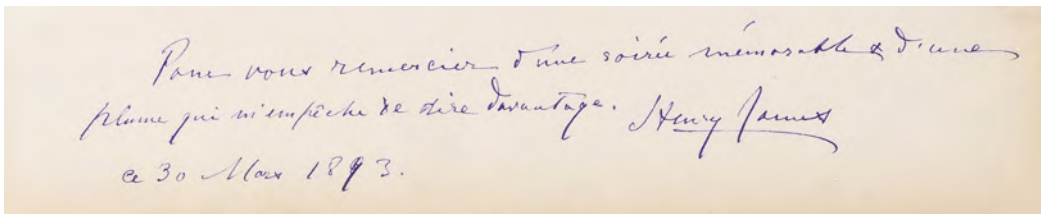 Pour vous remercier d'une soirée mémorable & d'une
plume qui m'empêche de dire davantage. Henry James
ce 30 Mars 1893.